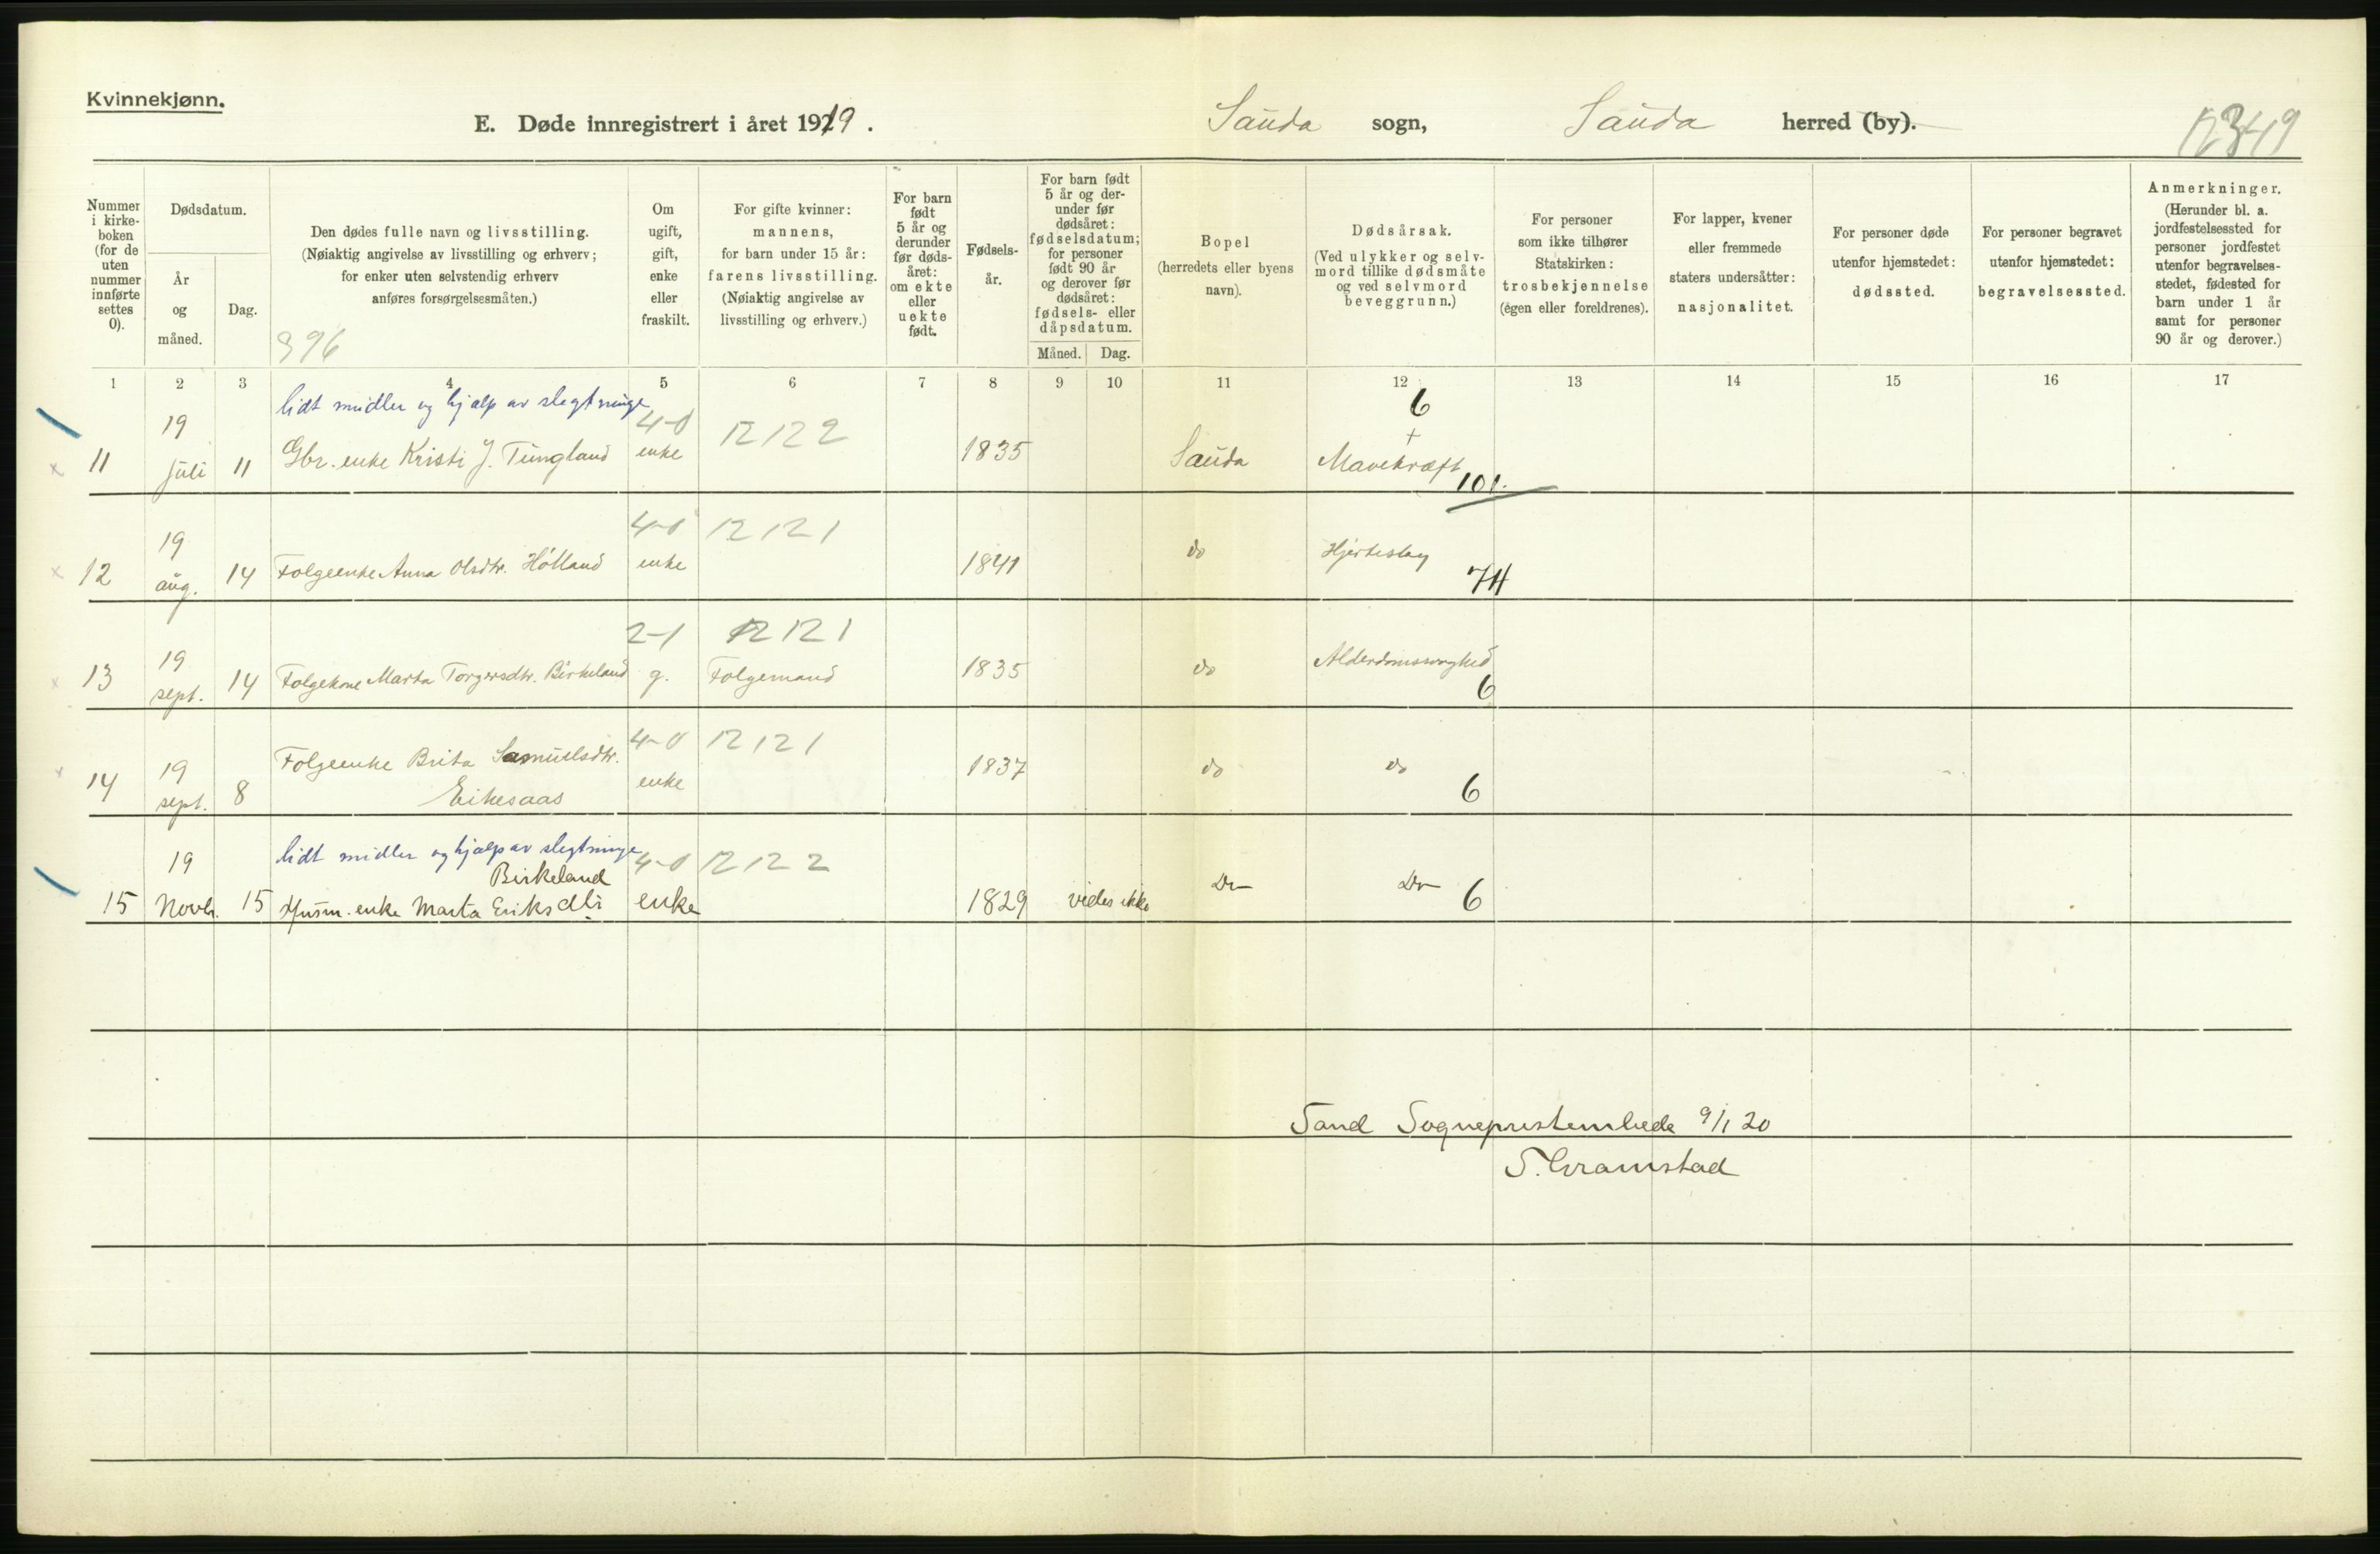 Kvinnekjønn.
E. Døde innregistrert i året 1919.
Sauda sogn, Sauda herred (by).
12349
Nummer i kirke- boken (for de uten nummer innførte settes 0).
Dødsdatum.
År og måned.
Dag.
Den dødes fulle navn og livsstilling.
(Nøiaktig angivelse av livsstilling og erhverv;
for enker uten selvstendig erhverv
anføres forsørgelsesmåten.)
396
Om ugift, gift, enke eller fraskilt.
For gifte kvinner:
mannens,
for barn under 15 år:
farens livsstilling.
(Nøiaktig angivelse av
livsstilling og erhverv.)
For barn født 5 år og derunder før døds- året: om ekte eller uekte født.
Fødsels- år.
For barn født 5 år og der- under før dødsåret: fødselsdatum; for personer født 90 år og derover før dødsåret: fødsels- eller dåpsdatum.
Måned. Dag.
Bopel
(herredets eller byens
navn).
Dødsårsak.
(Ved ulykker og selv-
mord tillike dødsmåte
og ved selvmord
beveggrunn.)
For personer
som ikke tilhører
Statskirken:
trosbekjennelse
(egen eller foreldrenes).
For lapper, kvener
eller fremmede
staters undersåtter:
nasjonalitet.
For personer døde
utenfor hjemstedet:
dødssted.
For personer begravet
utenfor hjemstedet:
begravelsessted.
Anmerkninger.
(Herunder bl. a.
jordfestelsessted for
personer jordfestet
utenfor begravelses-
stedet, fødested for
barn under 1 år
samt for personer
90 år og derover.)
1 2 3 4 5 6 7 8 9 10 11 12 13 14 15 16 17
lidt midler og hjælp av slegtninge
19 4-0 12122 6
+
11 juli 11 Gbr. enke Kristi J. Tungland enke 1835 Sauda Mavekræft 101.
19 4-0 12121
12 aug. 14 Folgeenke Anna Olsdtr. Hölland enke 1841 do Hjerteslag 74
19 2-1 12121
13 sept. 14 Folgekone Marta Torgersdtr. Birkeland g. Folgemand 1835 do Alderdomssvaghed 6
19 Folgeenke Brita Samuelsdtr. 4-0 12121
14 sept. 8 Eikesaas enke 1837 do do 6
lidt midler og hjælp av slegtninge
19 Birkeland 4-0 12122
15 Novbr. 15 Husm. enke Marta Eriksdtr enke 1829 vides ikke Do Do 6
Sand Sogneprestembede 9/1 20